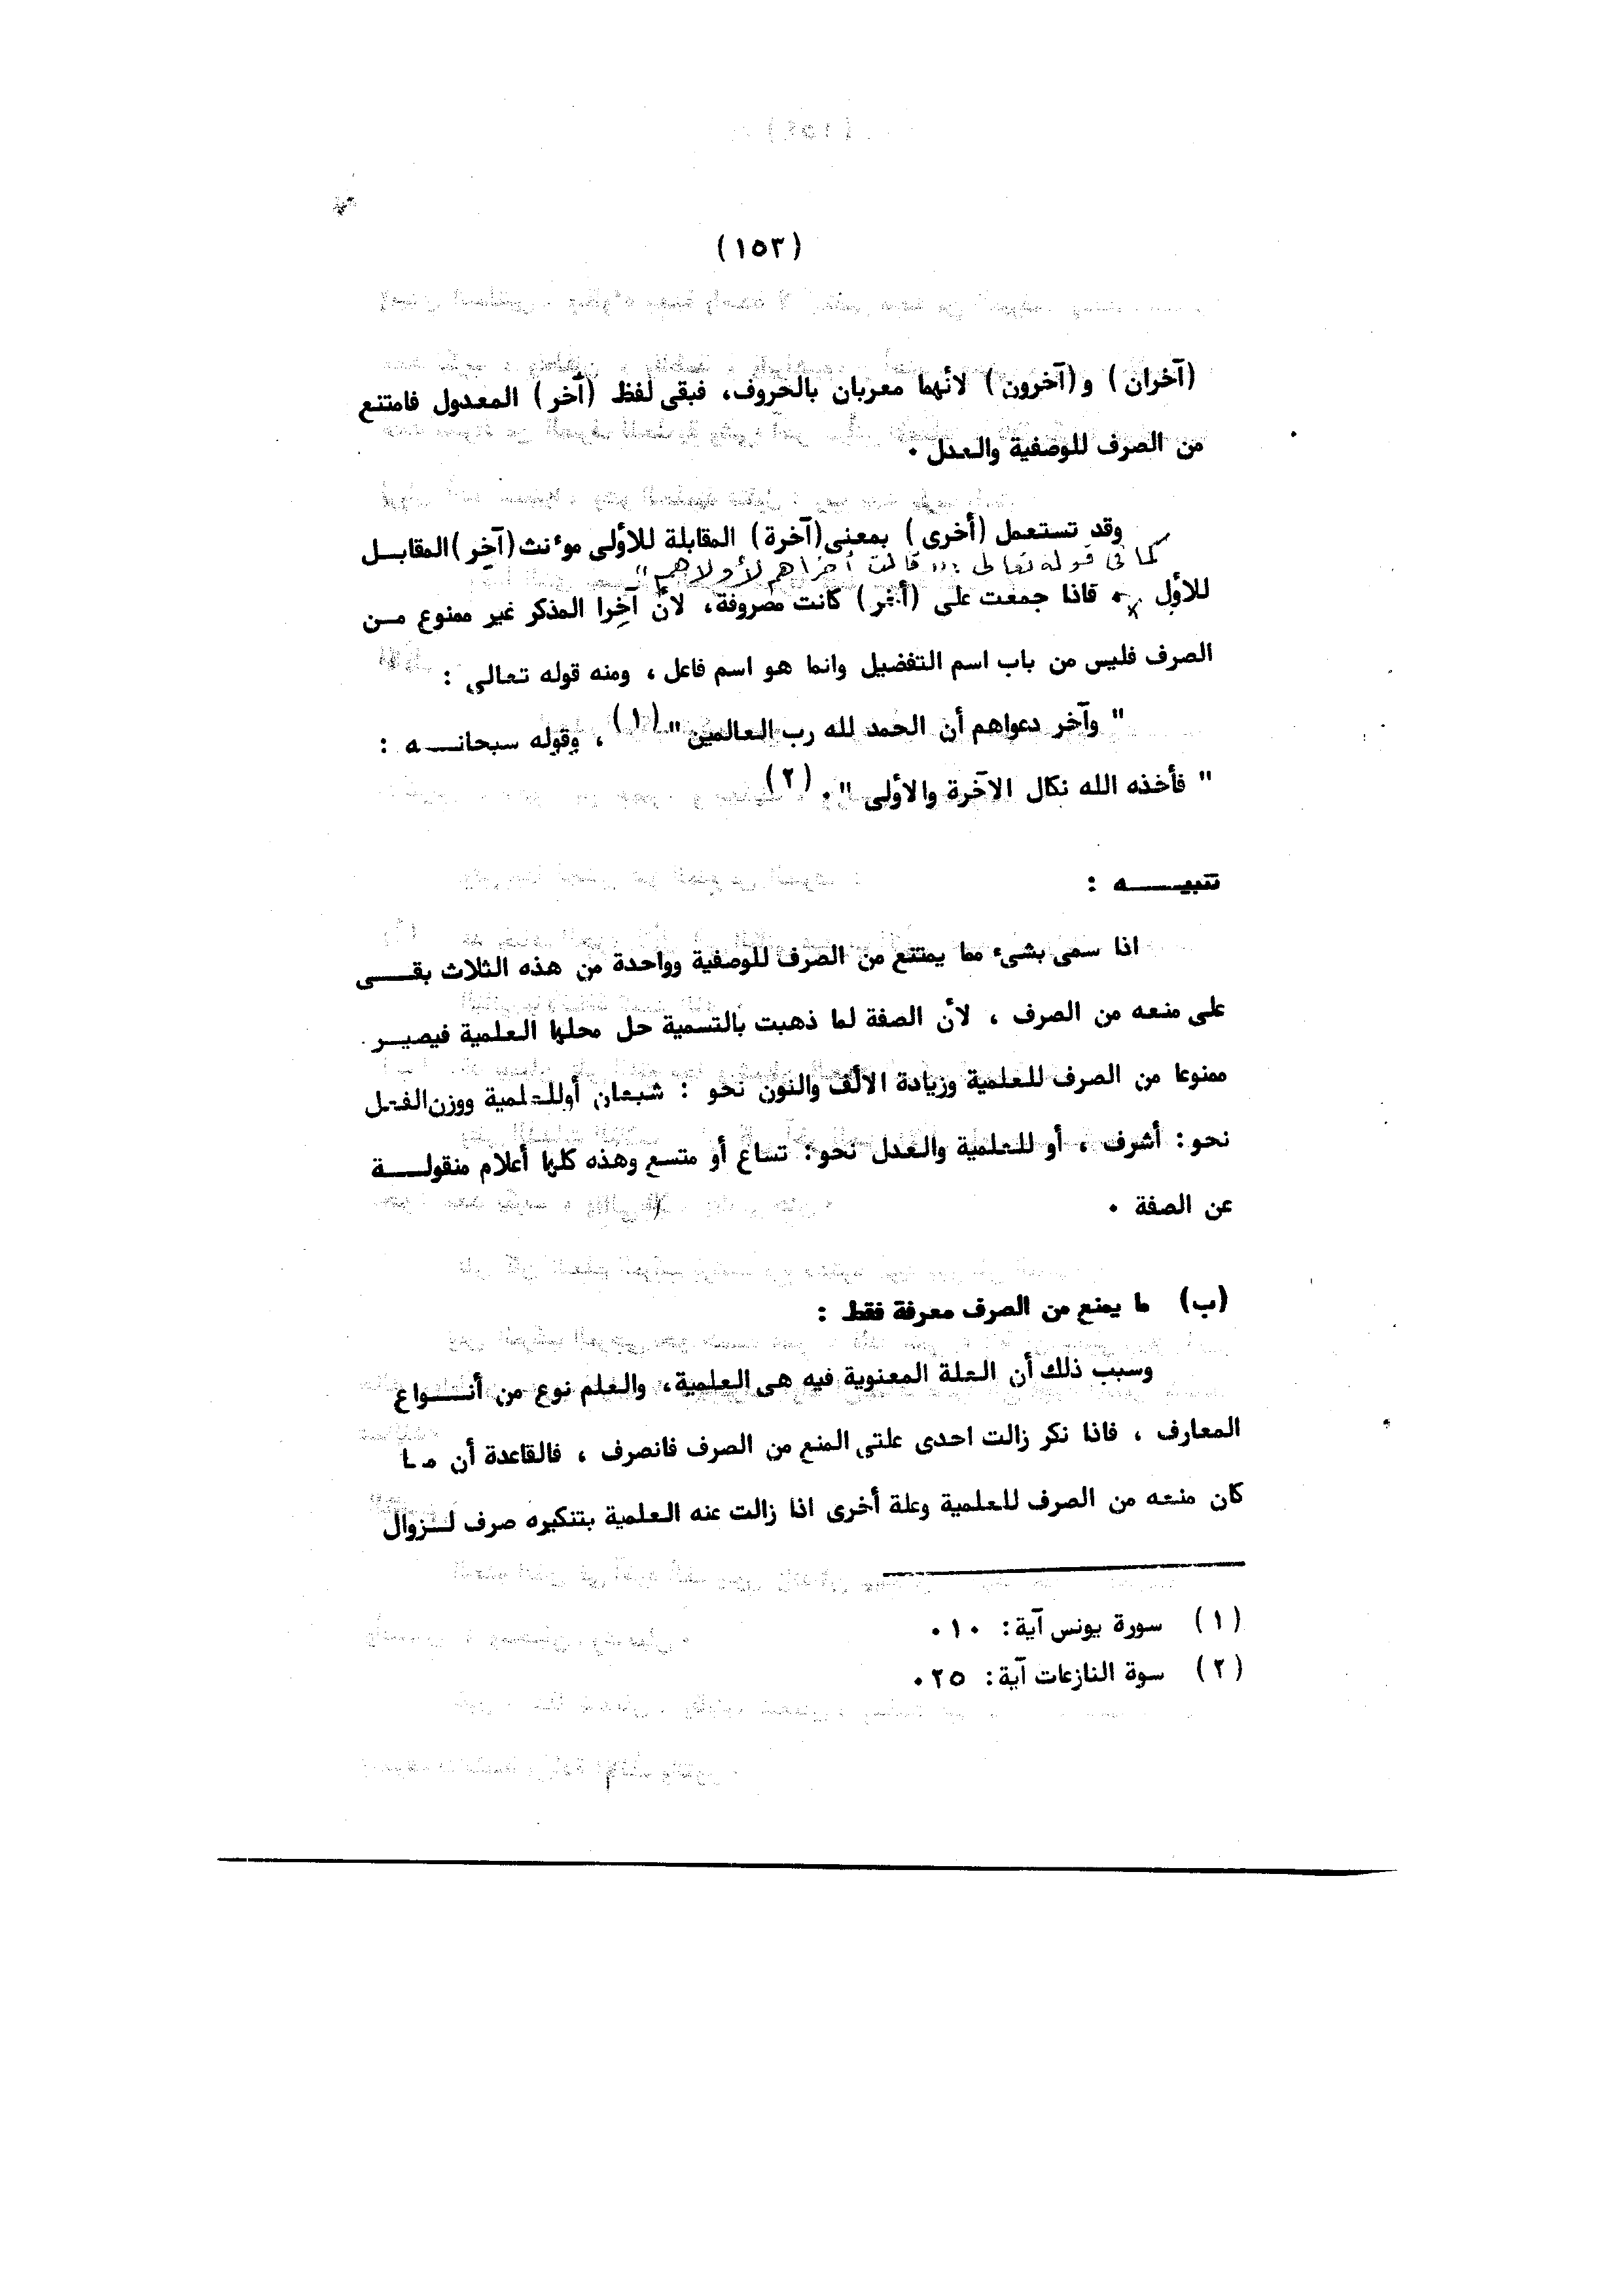 (١٥٣)
(آخران) و(آخرون) لأنهما معربان بالحروف، فبقى لفظ (أخر) المعدول فامتنع
من الصرف للوصفية والعدل ٠
وقد تستعمل (أخرى) بمعنى(آخرة) المقابلة للأولى موءنث(آخِر)المقابـل
كما فى قوله تعالى : " قالت أخراهم لأولاهم "
للأول ٠ فاذا جمعت على (أخر) كانت مصروفة، لأن آخِرا المذكر غير ممنوع مـن
الصرف فليس من باب اسم التفضيل وانما هو اسم فاعل ، ومنه قوله تعالى :
" وآخر دعواهم أن الحمد لله رب العالمين "(١) ، وقوله سبحانـــه :
" فأخذه الله نكال الآخرة والأولى "٠(٢)
تنبيـــــه :
اذا سمى بشىء مما يمتنع من الصرف للوصفية وواحدة من هذه الثلاث بقـــى
على منعه من الصرف ، لأن الصفة لما ذهبت بالتسمية حل محلها العلمية فيصيــر
ممنوعا من الصرف للعلمية وزيادة الألف والنون نحو : شبعان أوللعلمية ووزن الفعل
نحو: أشرف ، أو للعلمية والعدل نحو: تساع أو متسع وهذه كلها أعلام منقولـــة
عن الصفة ٠
(ب) ما يمنع من الصرف معرفة فقط :
وسبب ذلك أن العلة المعنوية فيه هى العلمية، والعلم نوع من أنـــواع
المعارف ، فاذا نكر زالت احدى علتى المنع من الصرف فانصرف ، فالقاعدة أن مـا
كان منعه من الصرف للعلمية وعلة أخرى اذا زالت عنه العلمية بتنكيره صرف لــزوال
(١) سورة يونس آية: ١٠٠
(٢) سوة النازعات آية: ٢٥٠